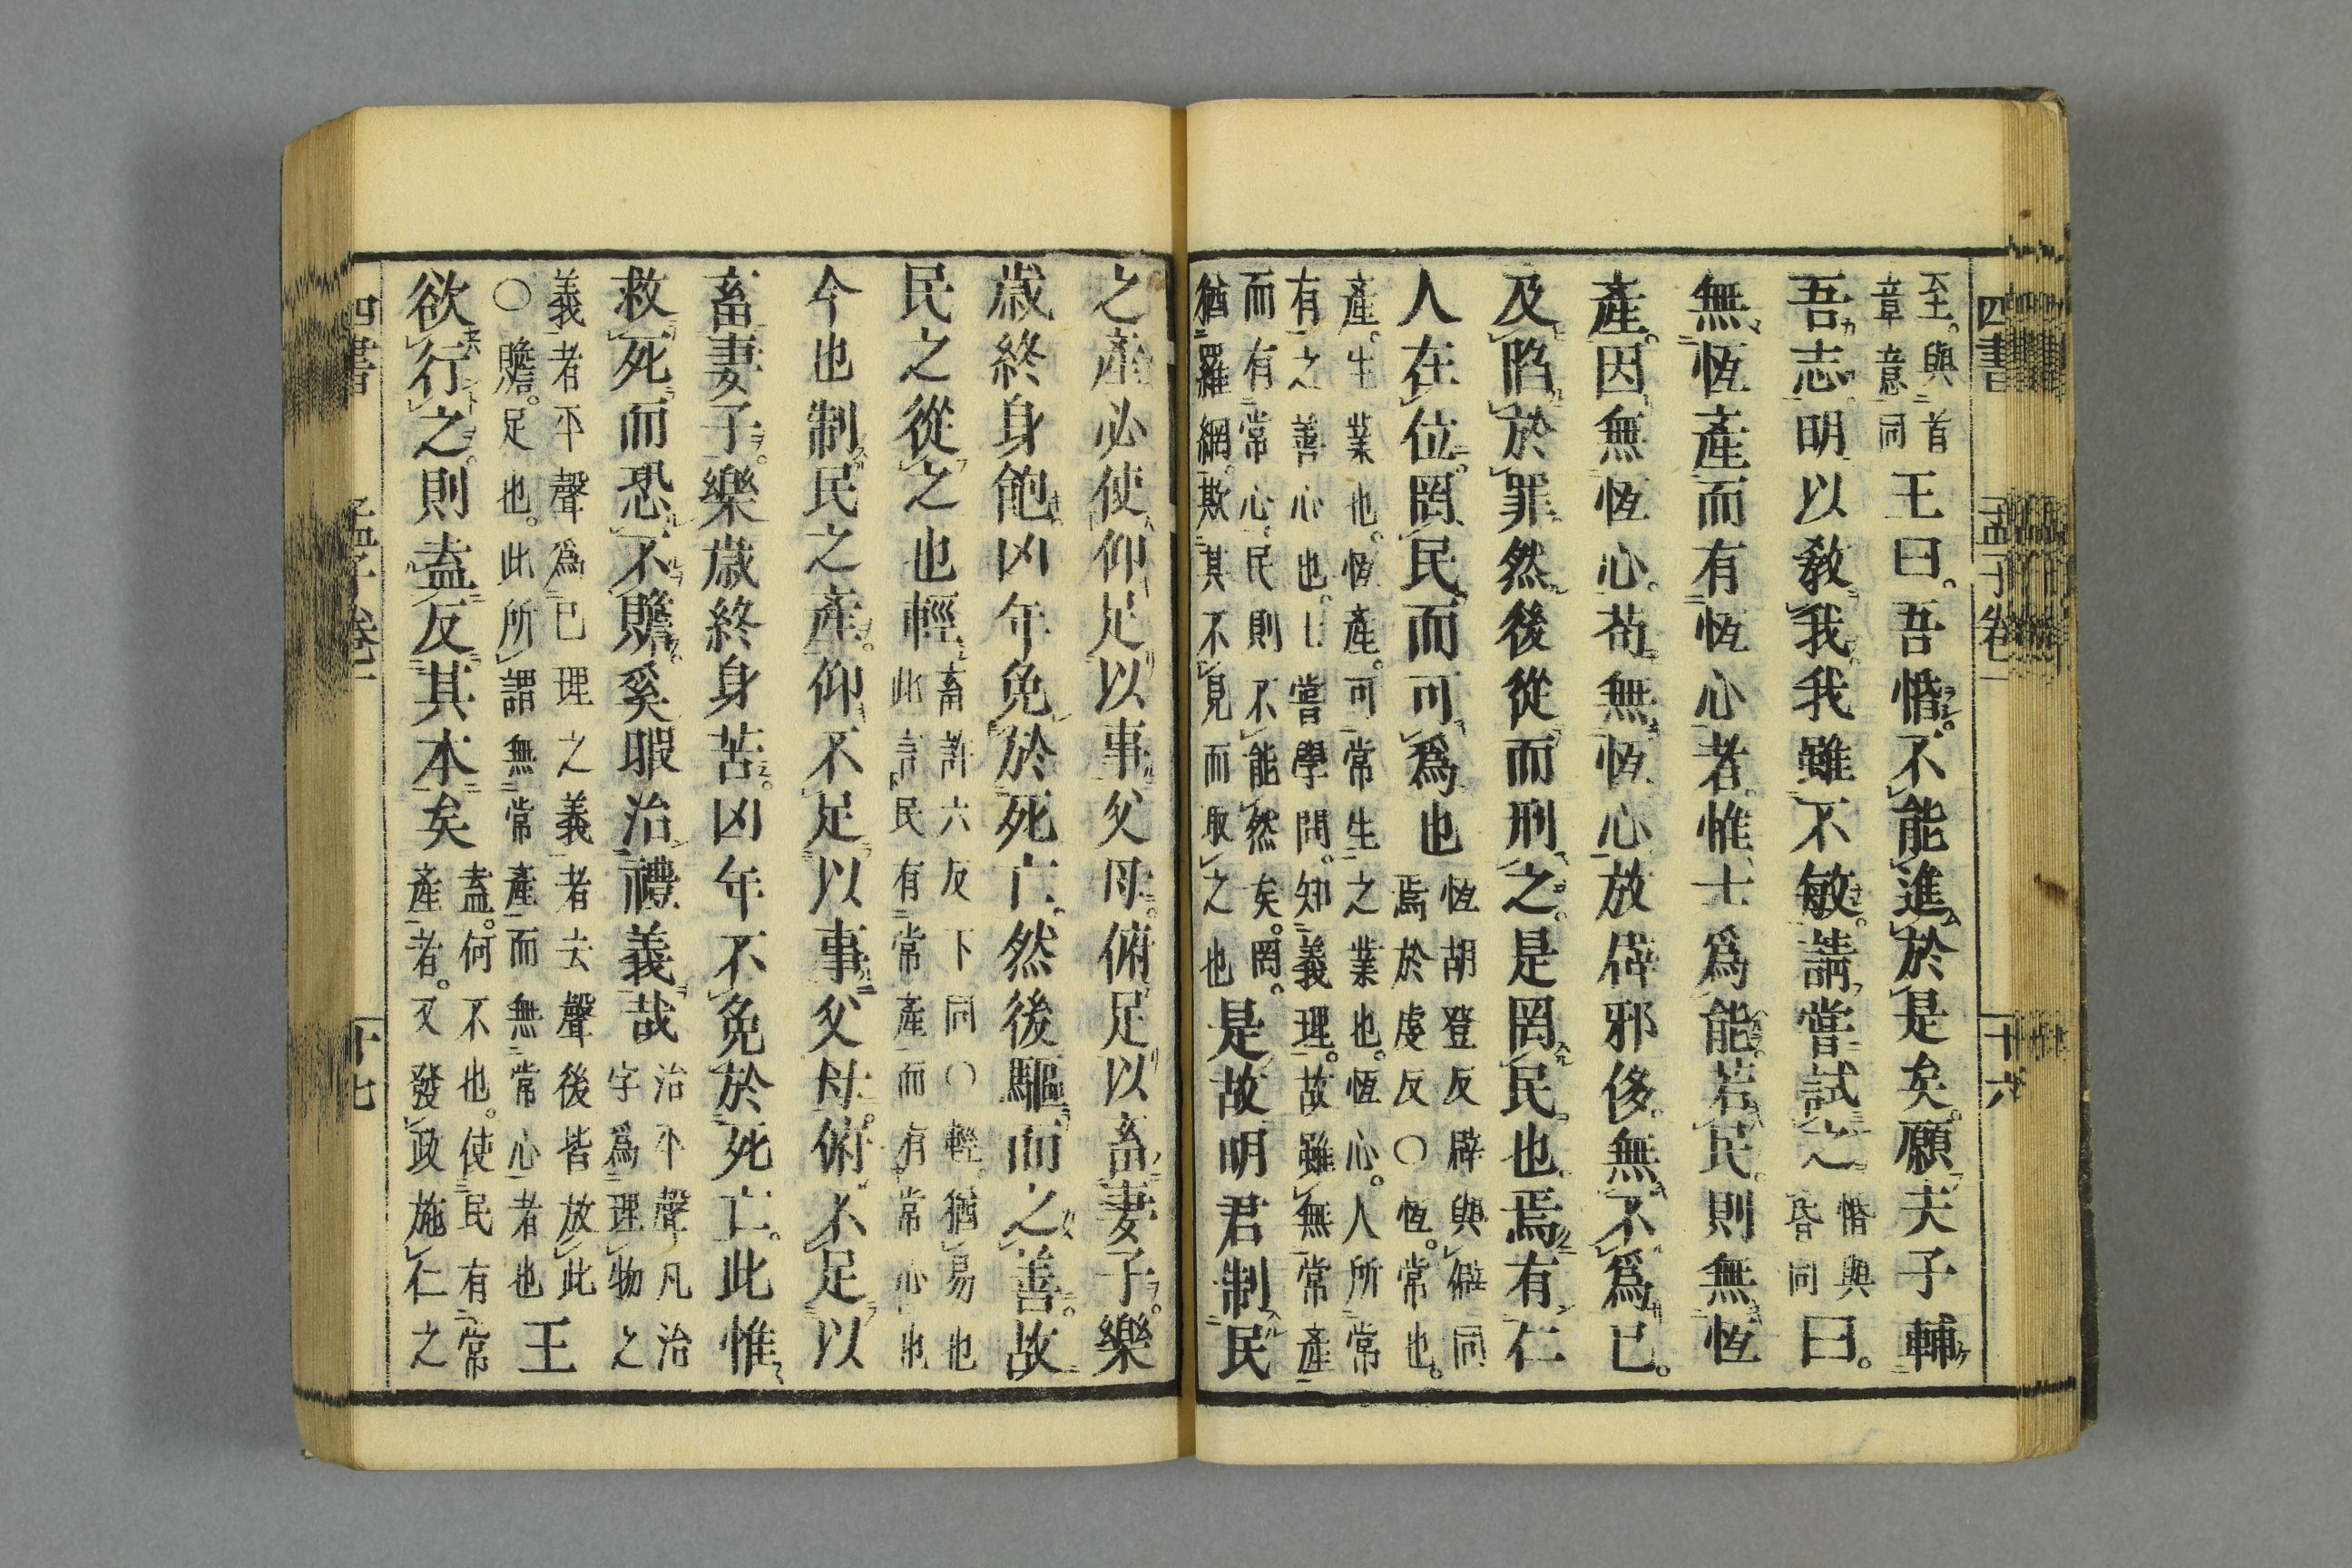 四書
孟子卷一
十六
至。與首
章意同
王曰。吾惛。不能進於是矣。願夫子輔
吾志。明以敎我。我雖不敏。請嘗試之
惛與
昏同
曰。
無恆產而有恆心者。惟士爲能。若民。則無恆
產。因無恆心。苟無恆心。放辟邪侈。無不爲已。
及陷於罪。然後從而刑之。是罔民也。焉有仁
人在位。罔民而可爲也
恆胡登反辟與僻同
焉於虔反〇恆。常也。
產。生業也。恆產。可常生之業也。恆心。人所常
有之善心也。士嘗學問。知義理。故雖無常產
而有常心。民則不能然矣。罔。
猶羅網。欺其不見而取之也
是故明君制民
之產必使仰足以事父母。俯足以畜妻子。樂
歲終身飽。凶年免於死亡。然後驅而之善。故
民之從之也輕
畜許六反下同〇輕。猶易也
此言民有常產而有常心也
今也制民之產。仰不足以事父母。俯不足以
畜妻子。樂歲終身苦。凶年不免於死亡。此惟
救死而恐不贍。奚暇治禮義哉
治平聲凡治
字爲理物之
義者平聲爲已理之義者去聲後皆放此
〇贍。足也。此所謂無常產而無常心者也
王
欲行之。則盍反其本矣
盍。何不也。使民有常
產者。又發政施仁之
四書
孟子卷一
十七